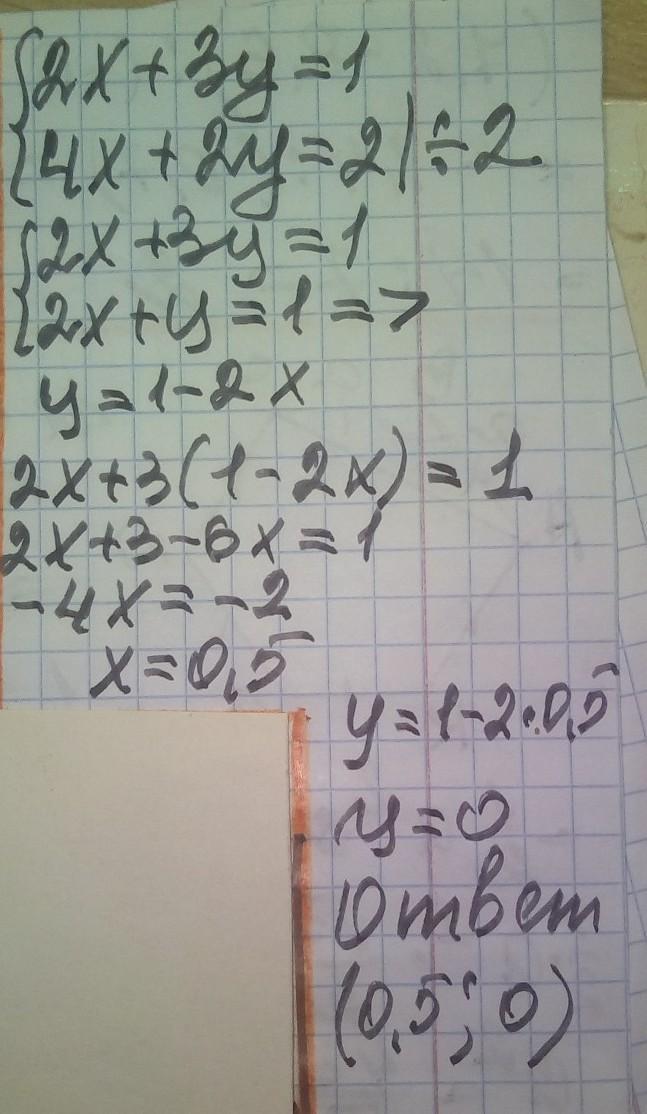 {2x + 3y = 1
{4x + 2y = 2 | ÷ 2
{2x + 3y = 1
{2x + y = 1 =>
y = 1 - 2x
2x + 3(1 - 2x) = 1
2x + 3 - 6x = 1
-4x = -2
x = 0,5
y = 1 - 2 · 0,5
y = 0
Ответ
(0,5; 0)